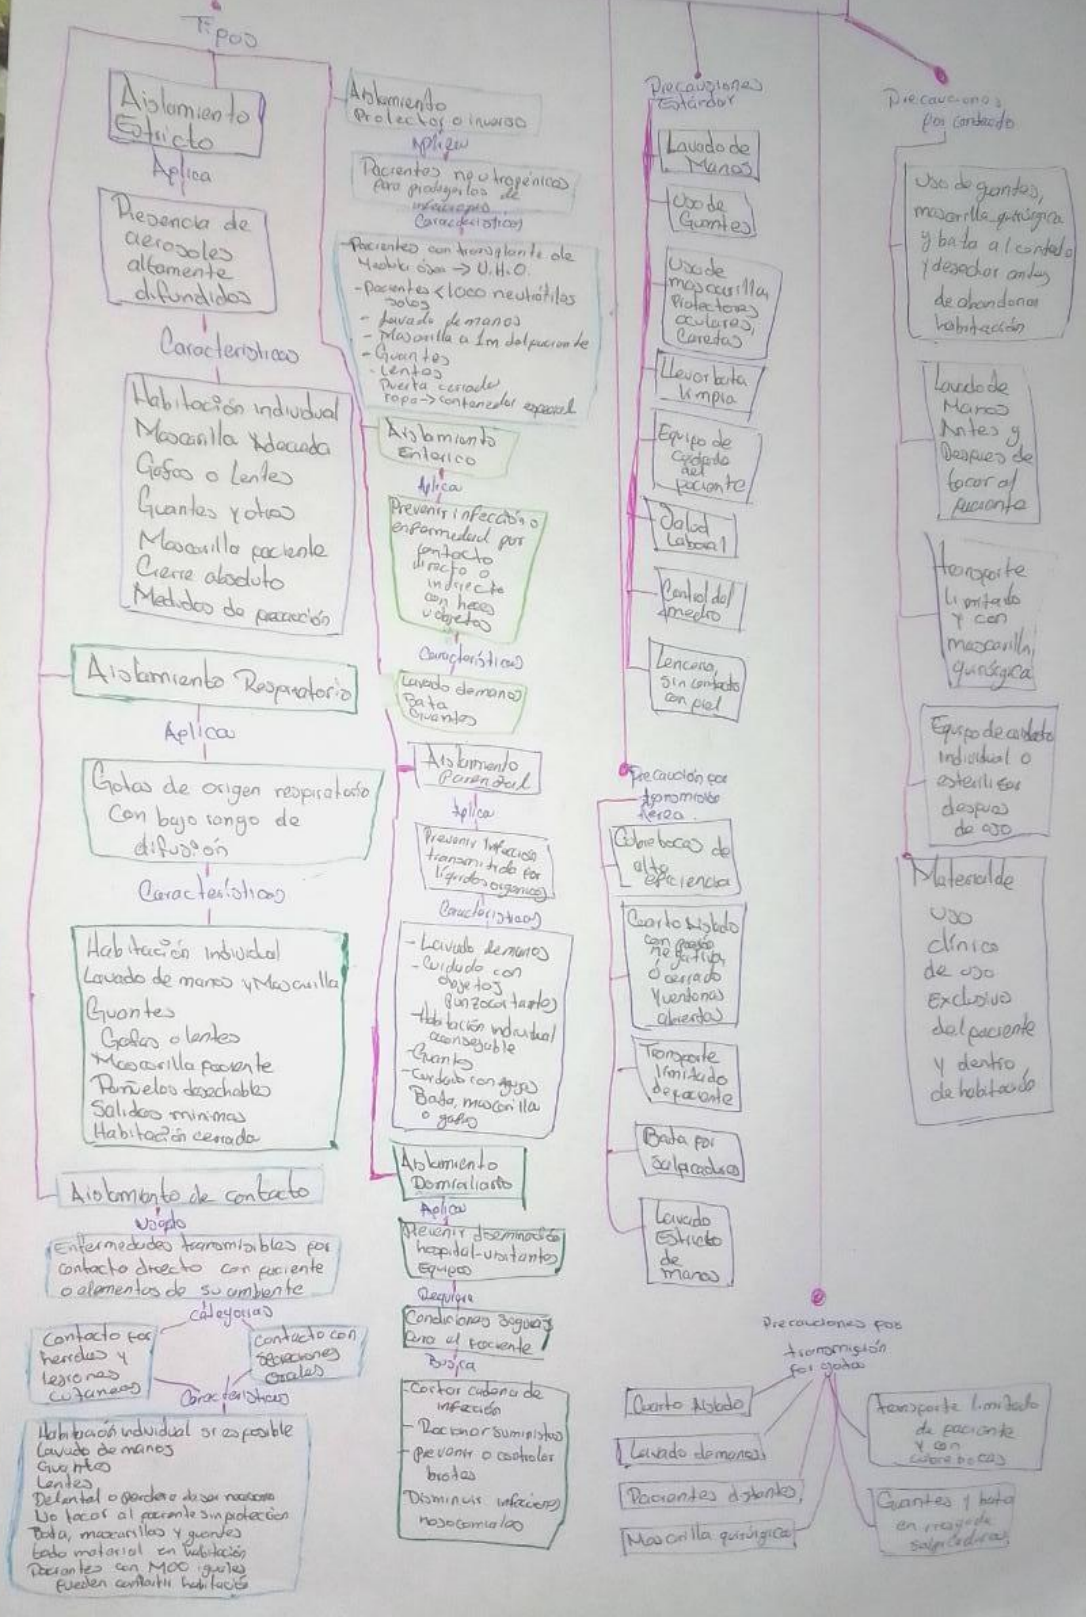 Tipos
Aislamiento
Estricto
Aplica
Presencia de
aerosoles
altamente
difundidos
Característicos
Habitación individual
Mascarilla Adecuada
Gafas o Lentes
Guantes y otros
Mascarilla paciente
Cierre absoluto
Medidas de precaución
Aislamiento Respiratorio
Aplica
Gotas de origen respiratorio
Con bajo rango de
difusión
Característicos
Habitación Individual
Lavado de manos y Mascarilla
Guantes
Gafas o lentes
Mascarilla paciente
Pañuelos desechables
Salidas minimas
Habitación cerrada
Aislamiento de contacto
Usado
Enfermedades transmisibles por
contacto directo con paciente
o elementos de su ambiente
categorias
Contacto por
heridas y
lesiones
cutaneas
contacto con
secreciones
orales
Característicos
Habitación individual si es posible
Lavado de manos
Guantes
Lentes
Delantal o
No tocar al paciente sin protección
Bata, mascarillas y guantes
todo material en habitación
Pacientes con MOO iguales
pueden compartir habitación
Aislamiento
Protector o inverso
Aplica
Pacientes neutropénicos
para protegerlos de
infecciones
Característicos
- Pacientes con transplante de
Medula ósea → U.H.O.
- Pacientes < 1000 neutrófilos
solos
- Lavado de manos
- Mascarilla a 1m del paciente
- Guantes
- Lentes
Puerta cerrada
ropa → contenedor especial
Aislamiento
Enterico
Aplica
Prevenir infección o
enfermedad por
contacto
directo o
indirecto
con heces
u objetos
Característicos
Lavado de manos
Bata
Guantes
Aislamiento
Parenteral
Aplica
Prevenir Infección
transmitida por
líquidos organicos
Característicos
- Lavado de manos
- Cuidado con
objetos
punzocortantes
- Habitación individual
aconsejable
- Guantes
- Cuidado con agujas
Bata, mascarilla
o gafas
Aislamiento
Domiciliario
Aplica
Prevenir diseminación
hospital-visitantes
Equipos
Requiere
Condiciones seguras
para el paciente
Busca
- Cortar cadena de
infección
- Racionar suministros
- prevenir o controlar
brotes
Disminuir infecciones
nosocomiales
Precauciones
Estándar
Lavado de
Manos
Uso de
Guantes
Uso de
mascarilla,
Protectores
oculares,
Caretas
Llevar bata
limpia
Equipo de
cuidado
del
paciente
Salud
Laboral
Control del
medio
Lenceria,
sin contacto
con piel
Precaución por
transmisión
Aerea
Cubrebocas de
alta
eficiencia
Cuarto Aislado
con presión
negativa
ó cerrado
y ventanas
abiertas
Transporte
limitado
de paciente
Bata por
Salpicaduras
Lavado
Estricto
de
manos
Precauciones por
transmisión
por gotas
Cuarto Aislado
Lavado de manos
Pacientes distantes
Mascarilla quirúrgica
transporte limitado
de paciente
y con
cubrebocas
Guantes y bata
en riesgo de
salpicaduras
Precauciones
por contacto
Uso de guantes,
mascarilla quirúrgica
y bata al contacto
y desechar antes
de abandonar
habitación
Lavado de
Manos
Antes y
Despues de
tocar al
paciente
transporte
limitado
y con
mascarilla
quirúrgica
Equipo de cuidado
individual o
esterilizar
despues
de uso
Material de
uso
clínico
de uso
Exclusivo
del paciente
y dentro
de habitación